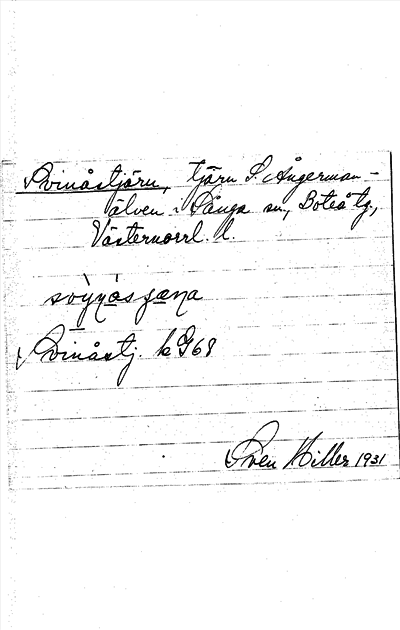 Svinåstjärn, tjärn S. Ångerman-
älven i Sånga sn, Boteå tg,
Västernorrl. l.
Svinåstj. k G68
Sven Hiller 1931